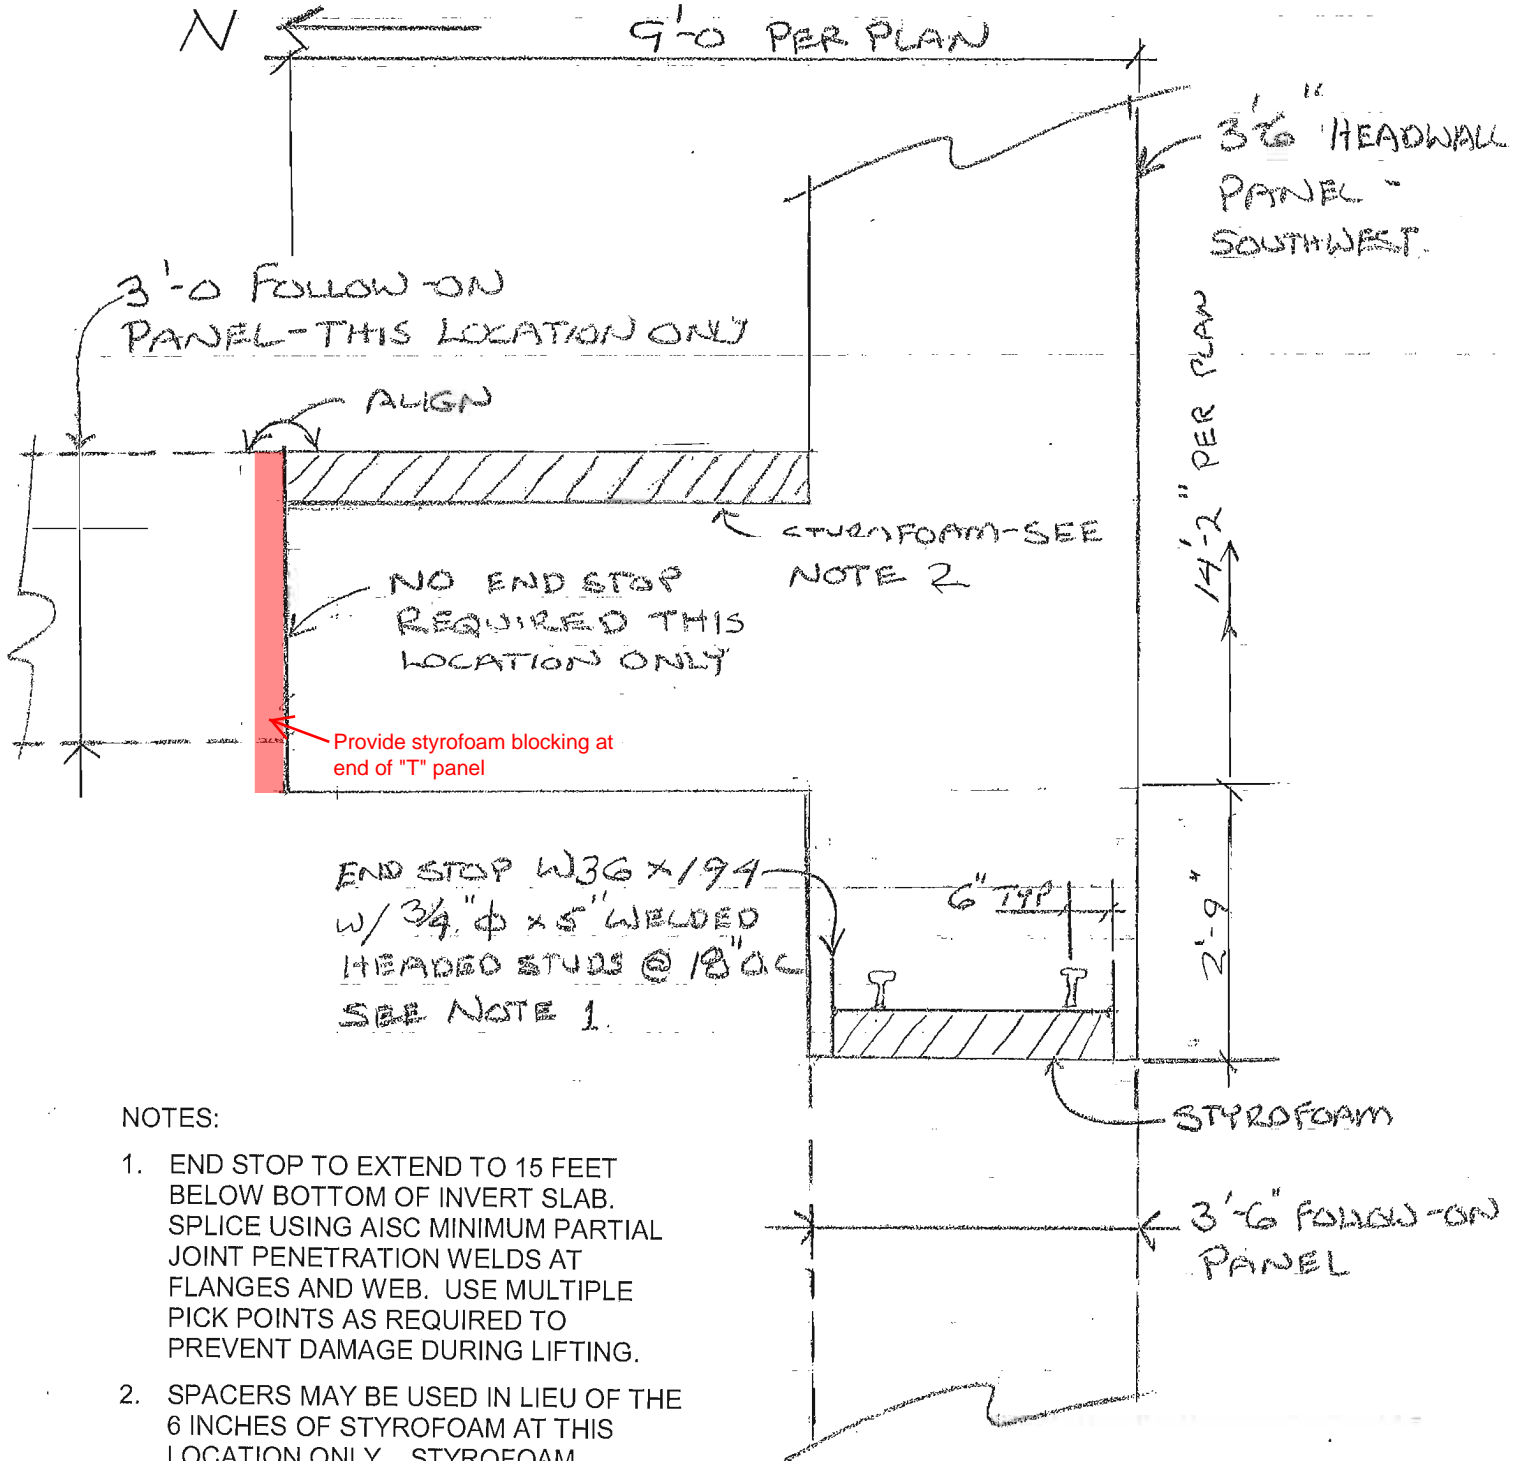 N
9'-0 PER PLAN
3'-6" HEADWALL
PANEL -
SOUTHWEST.
3'-0 FOLLOW-ON
PANEL-THIS LOCATION ONLY
ALIGN
14'-2" PER PLAN
STYROFOAM-SEE
NOTE 2
NO END STOP
REQUIRED THIS
LOCATION ONLY
Provide styrofoam blocking at
end of "T" panel
END STOP W36 x 194
W/ 3/4"φ x 5" WELDED
HEADED STUDS @ 18" O.C
SEE NOTE 1.
6" TYP
2'-9"
STYROFOAM
3'-6" FOLLOW-ON
PANEL
NOTES:
1. END STOP TO EXTEND TO 15 FEET
BELOW BOTTOM OF INVERT SLAB.
SPLICE USING AISC MINIMUM PARTIAL
JOINT PENETRATION WELDS AT
FLANGES AND WEB. USE MULTIPLE
PICK POINTS AS REQUIRED TO
PREVENT DAMAGE DURING LIFTING.
2. SPACERS MAY BE USED IN LIEU OF THE
6 INCHES OF STYROFOAM AT THIS
LOCATION ONLY. STYROFOAM